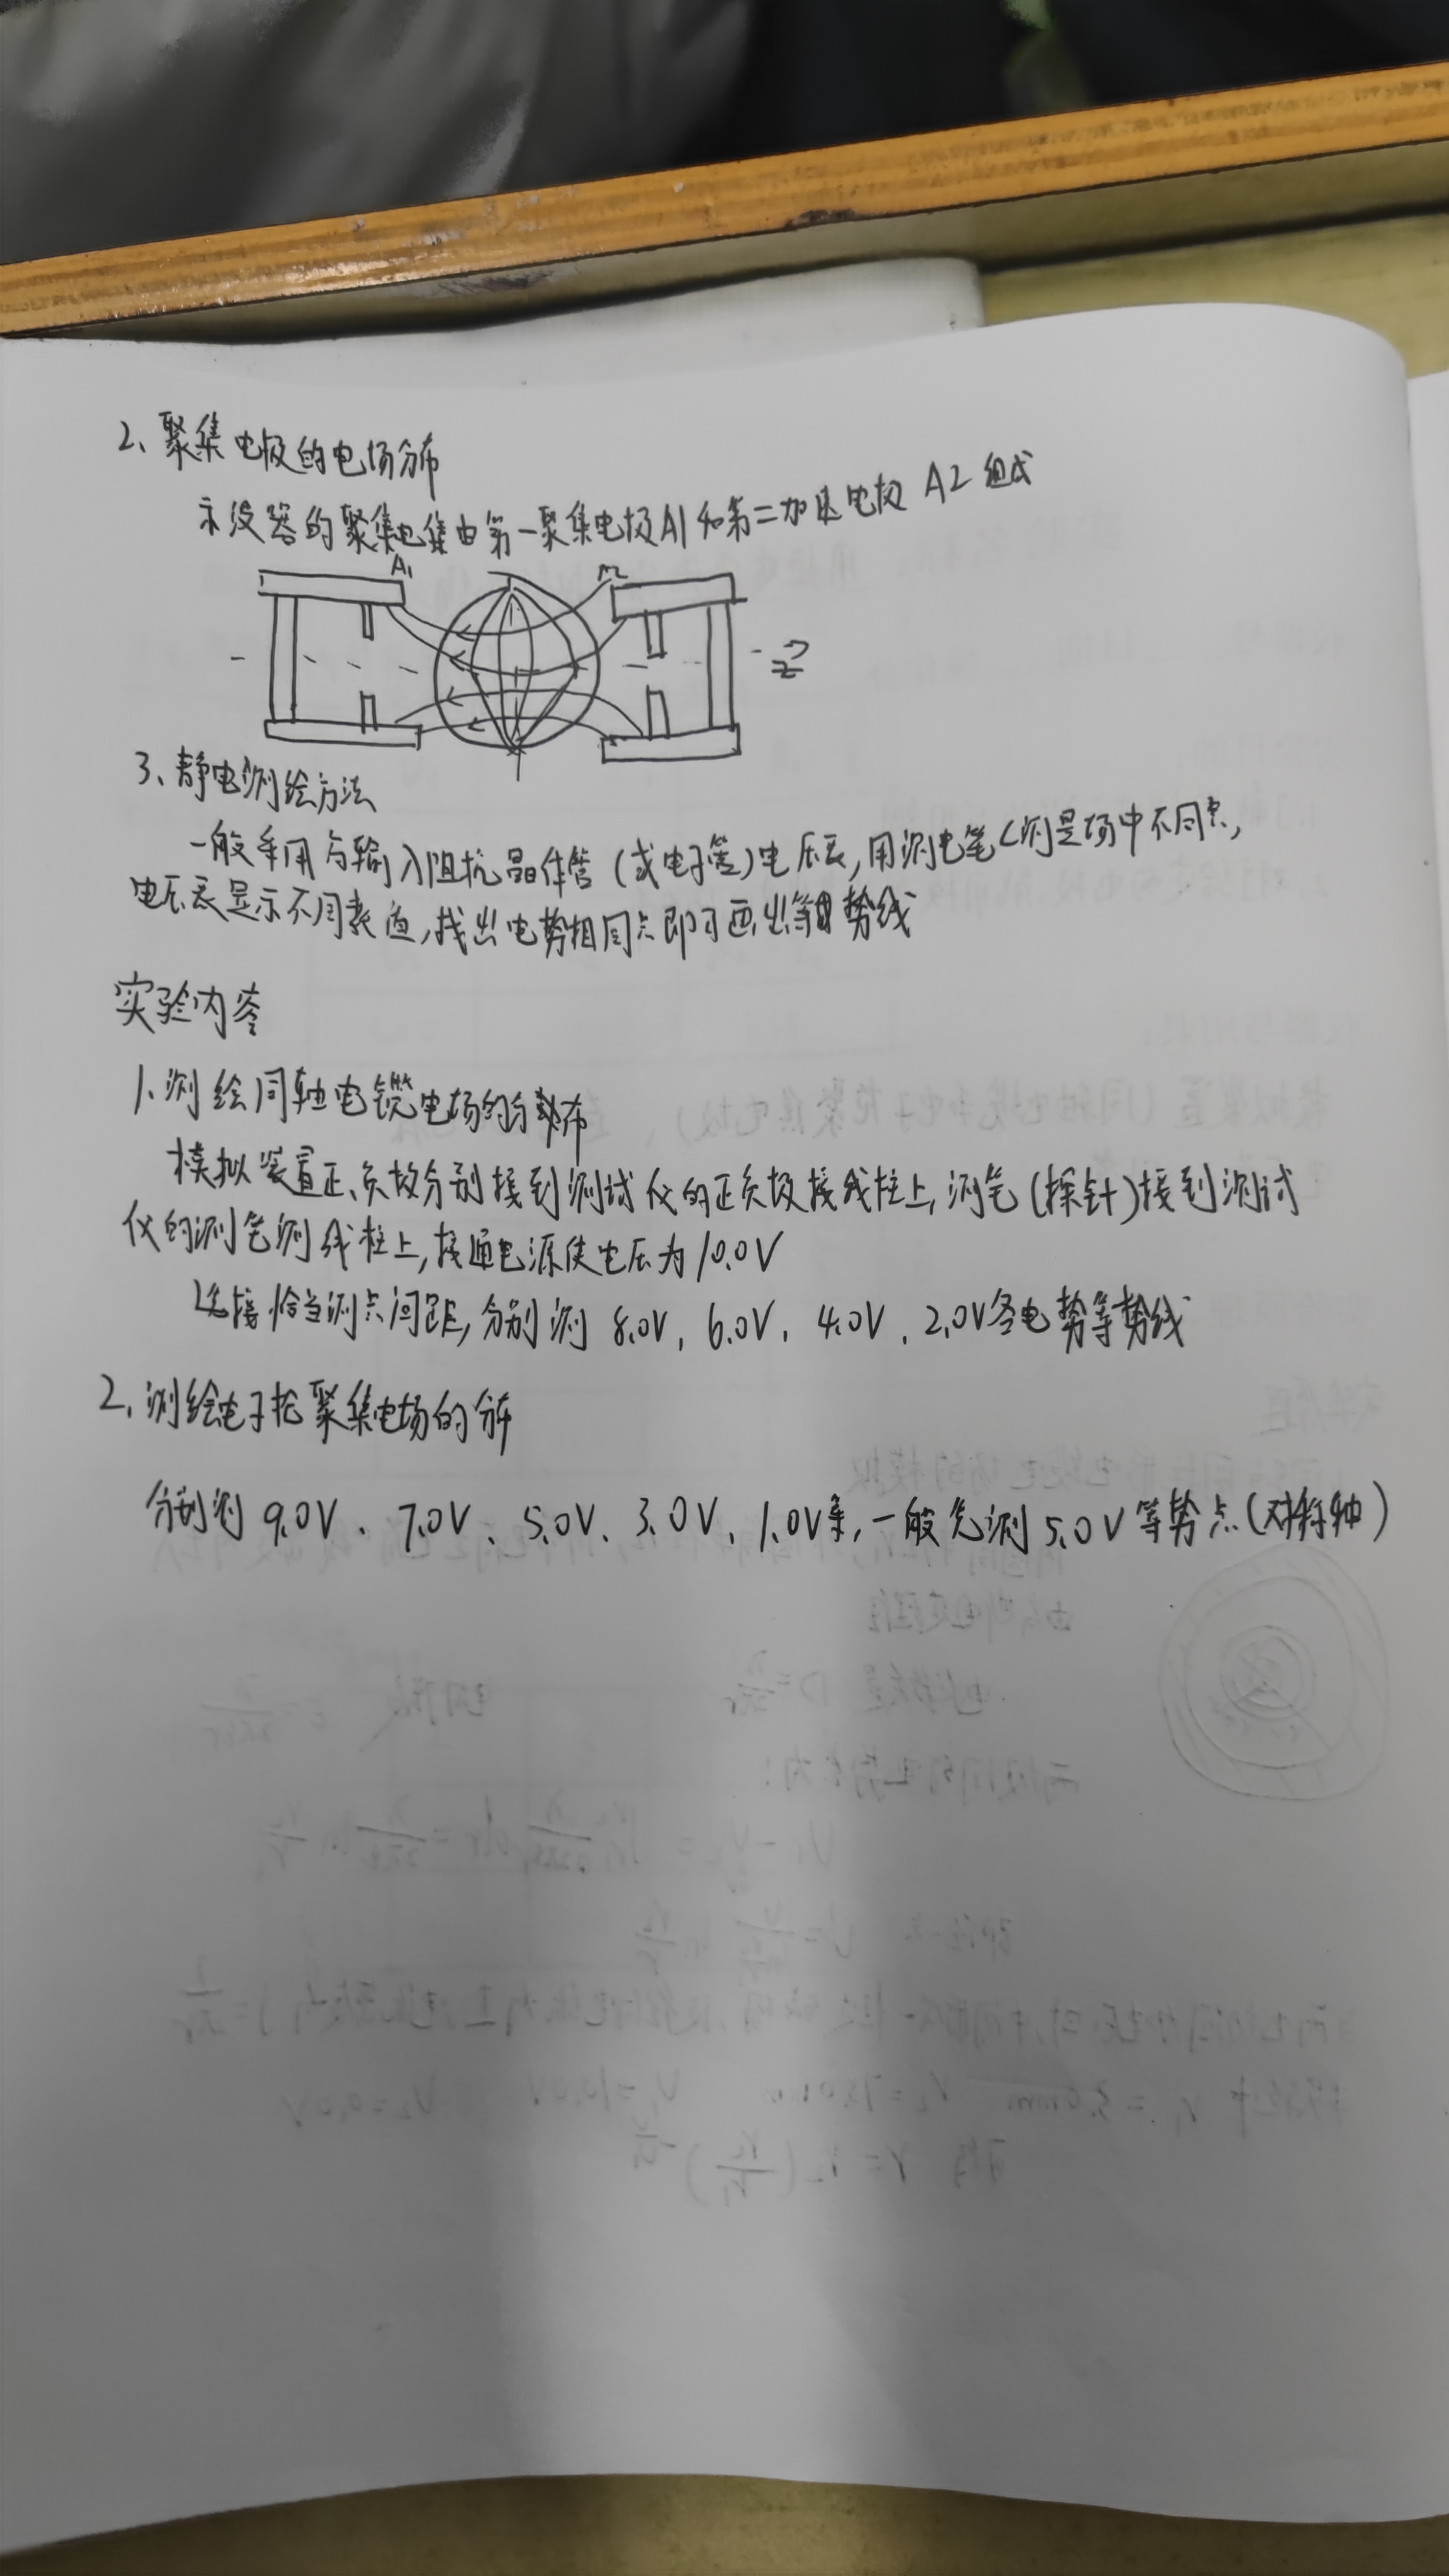 2、聚集电极的电场分布
示波器的聚集电集由第一聚集电极A1和第二加速电极 A2 组成
A1 A2
Z
3、静电测绘方法
一般采用高输入阻抗晶体管（或电子管）电压表，用测电笔测量场中不同点，
电压表显示不同数值，找出电势相同点即可画出等势线
实验内容
1、测绘同轴电缆电场的分布
模拟装置正、负极分别接到测试仪的正负极接线柱上，测笔（探针）接到测试
仪的测笔测线柱上，接通电源使电压为10.0V
选择恰当测点间距，分别测 8.0V，6.0V，4.0V，2.0V各电势等势线
2、测绘电子枪聚集电场的分布
分别测 9.0V、7.0V、5.0V、3.0V、1.0V等，一般先测5.0V等势点（对称轴）